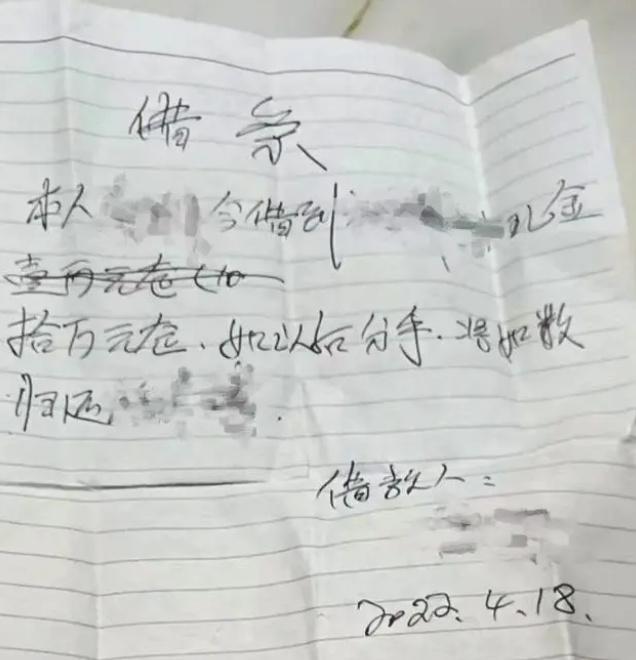 借条
本人 今借到 礼金
壹万元在(10
拾万元在、如以后分手.将如数
归还 .
借款人:
2022.4.18.